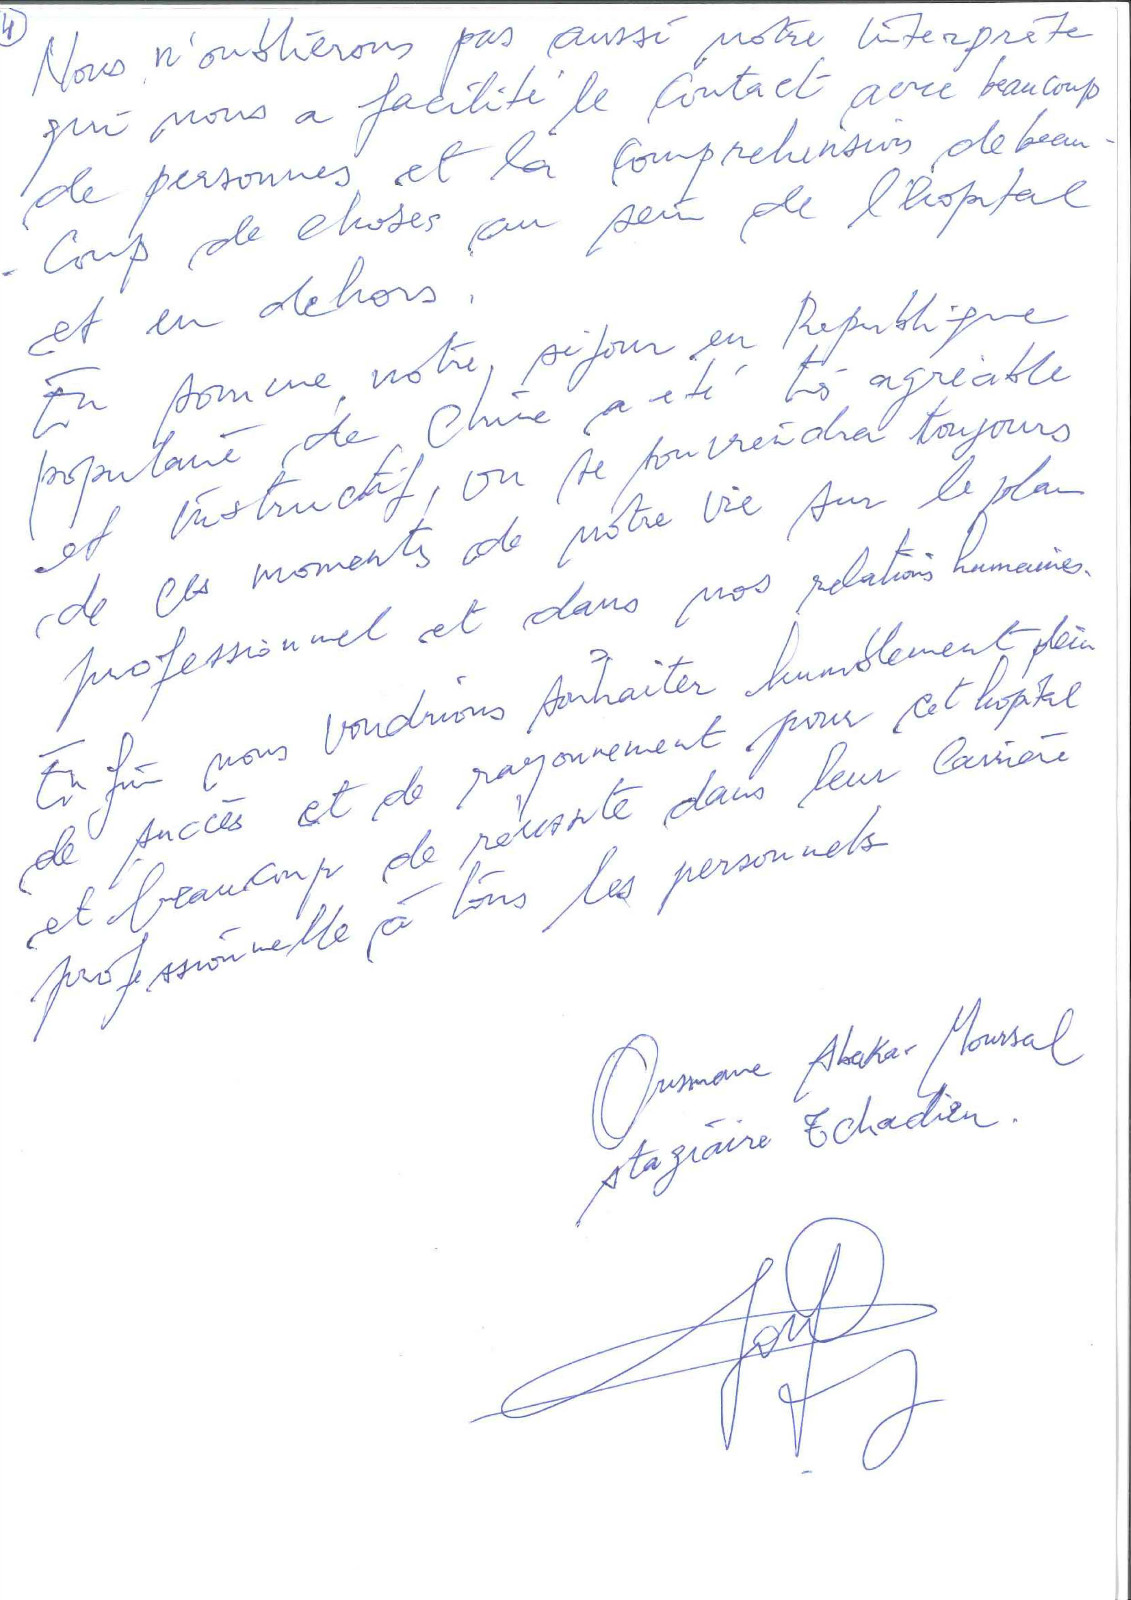 4
Nous n'oublierons pas aussi notre interprète
qui nous a facilité le contact avec beaucoup
de personnes et la comprehension de beau-
-coup de choses au sein de l'hopital
et en dehors.
En somme, notre séjour en Republique
populaire de Chine a été très agréable
et instructif, on se souviendra toujours
de ces moments de notre vie sur le plan
professionnel et dans nos relations humaines.
Enfin nous voudrions souhaiter humblement plein
de succès et de rayonnement pour cet hopital
et beaucoup de réussite dans leur carrière
professionnelle à tous les personnels
Ousmane Abakar Moursal
stagiaire Tchadien.